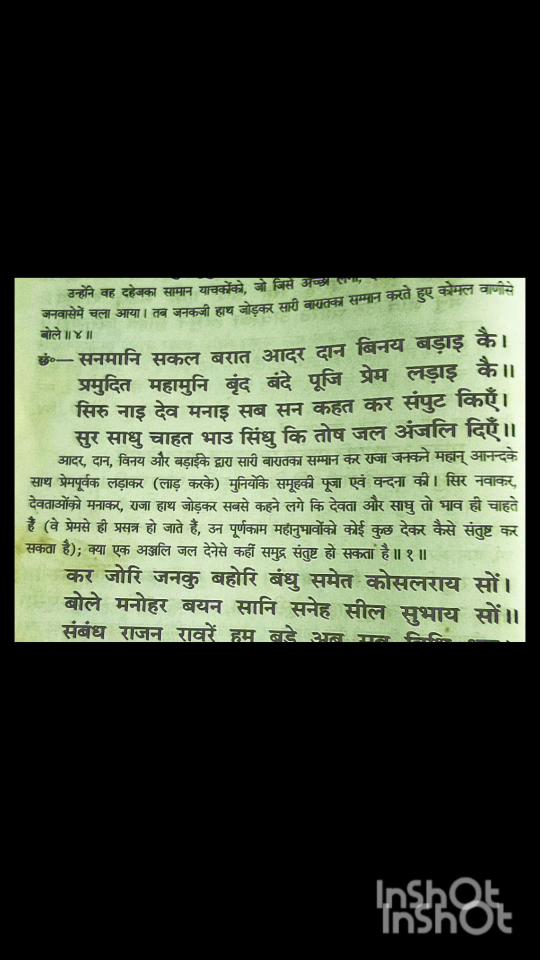 उन्होंने वह दहेजका सामान याचकोंको, जो जिसे अच्छा लगा,
जनवासेमें चला आया। तब जनकजी हाथ जोड़कर सारी बारातका सम्मान करते हुए कोमल वाणीसे
बोले॥४॥
छं०— सनमानि सकल बरात आदर दान बिनय बड़ाइ कै।
प्रमुदित महामुनि बृंद बंदे पूजि प्रेम लड़ाइ कै॥
सिरु नाइ देव मनाइ सब सन कहत कर संपुट किएँ।
सुर साधु चाहत भाउ सिंधु कि तोष जल अंजलि दिएँ॥
आदर, दान, विनय और बड़ाईके द्वारा सारी बारातका सम्मान कर राजा जनकने महान् आनन्दके
साथ प्रेमपूर्वक लड़ाकर (लाड़ करके) मुनियोंके समूहकी पूजा एवं वन्दना की। सिर नवाकर,
देवताओंको मनाकर, राजा हाथ जोड़कर सबसे कहने लगे कि देवता और साधु तो भाव ही चाहते
हैं (वे प्रेमसे ही प्रसन्न हो जाते हैं, उन पूर्णकाम महानुभावोंको कोई कुछ देकर कैसे संतुष्ट कर
सकता है); क्या एक अञ्जलि जल देनेसे कहीं समुद्र संतुष्ट हो सकता है॥१॥
कर जोरि जनकु बहोरि बंधु समेत कोसलराय सों।
बोले मनोहर बयन सानि सनेह सील सुभाय सों॥
संबंध राजन रावरें हम बड़े अब सब बिधि
InShOt
InShOt